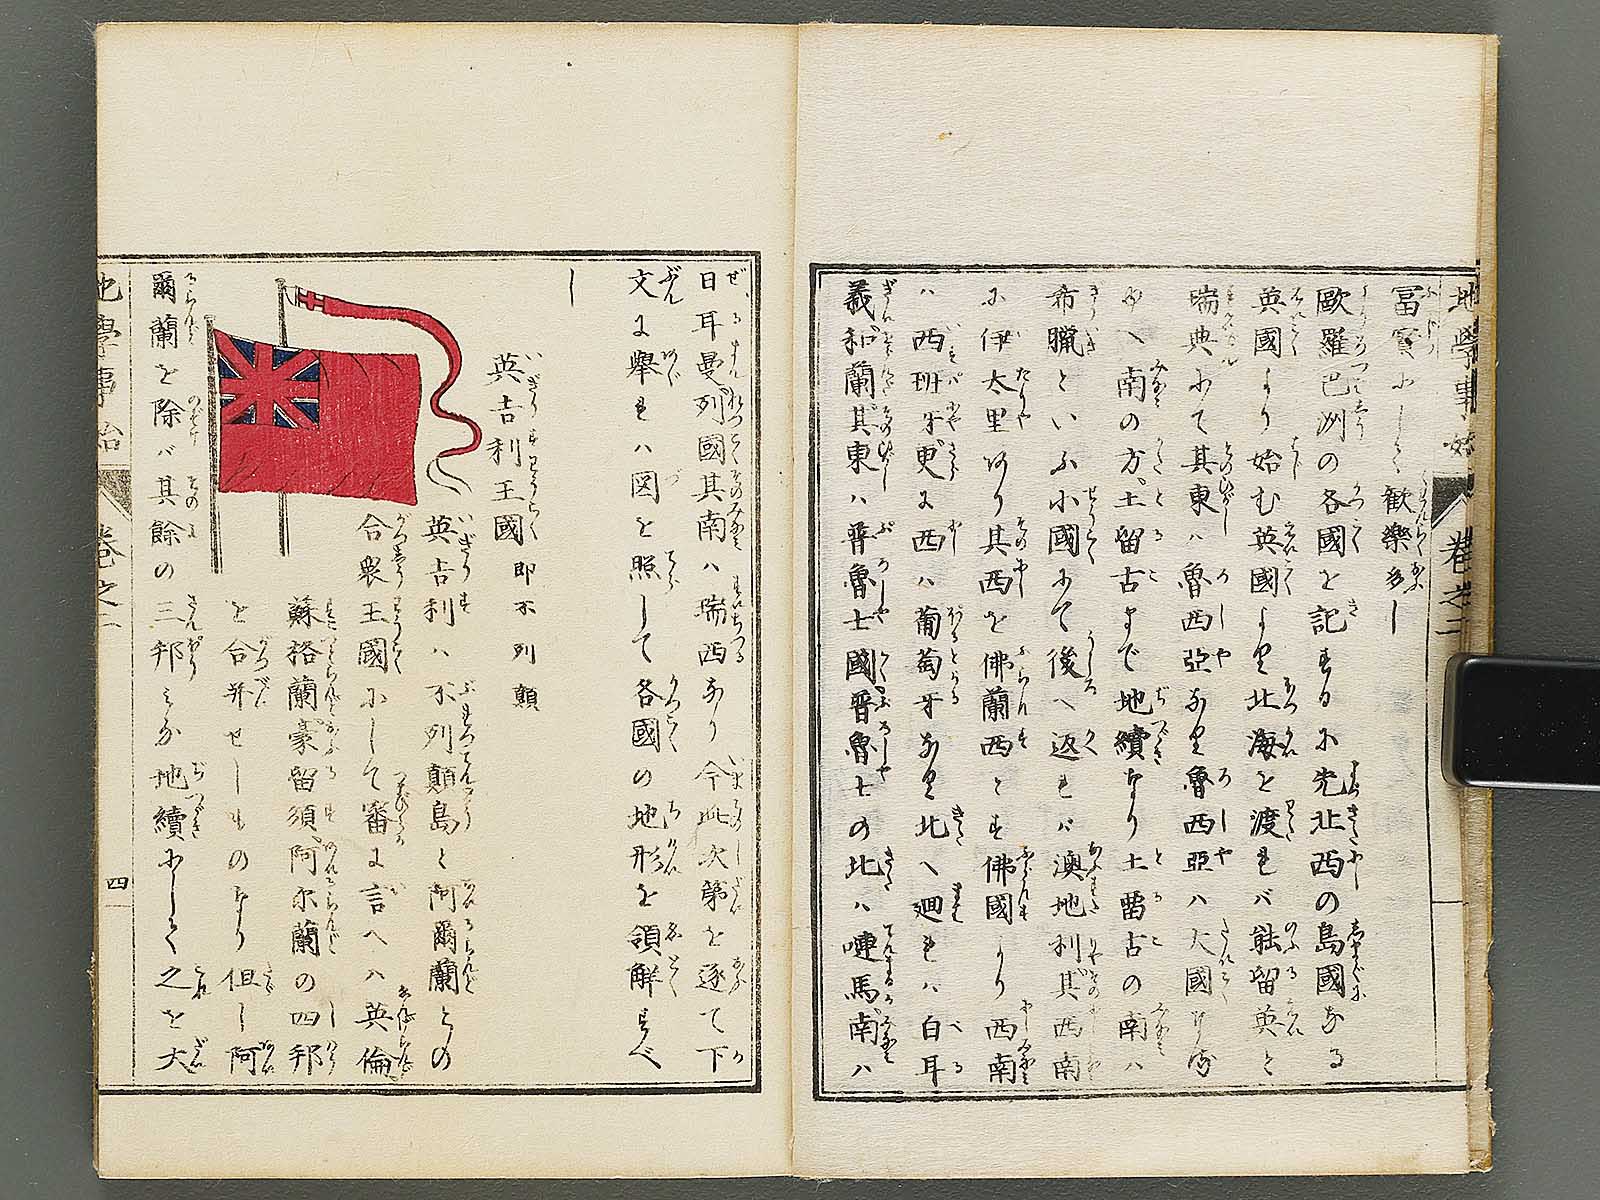 地學事始
卷之二
冨實にして歓樂多し
歐羅巴洲の各國を記するに先北西の島國なる
英國より始む英國より北海を渡れバ能留英と
瑞典にて其東ハ魯西亞なり魯西亞ハ大國
南の方土留古まで地續なり土留古の南ハ
希臘といふ小國にて後へ返れバ澳地利其西南
に伊太里あり其西を佛蘭西とす佛國より西南
ハ西班牙更に西ハ葡萄牙なり北へ廻れバ白耳
義和蘭其東ハ普魯士國普魯士の北ハ嗹馬南ハ
日耳曼列國其南ハ瑞西なり今此次第を逐て下
文に擧れバ図を照して各國の地形を領解すべ
し
英吉利王國即不列顛
英吉利ハ不列顛島と阿爾蘭との
合衆王國にして審に言へハ英倫
蘇格蘭豪留須阿尔蘭の四邦
を合併せしものなり但し阿
爾蘭を除バ其餘の三邦ミな地續にして之を大
地學事始
卷之二
四